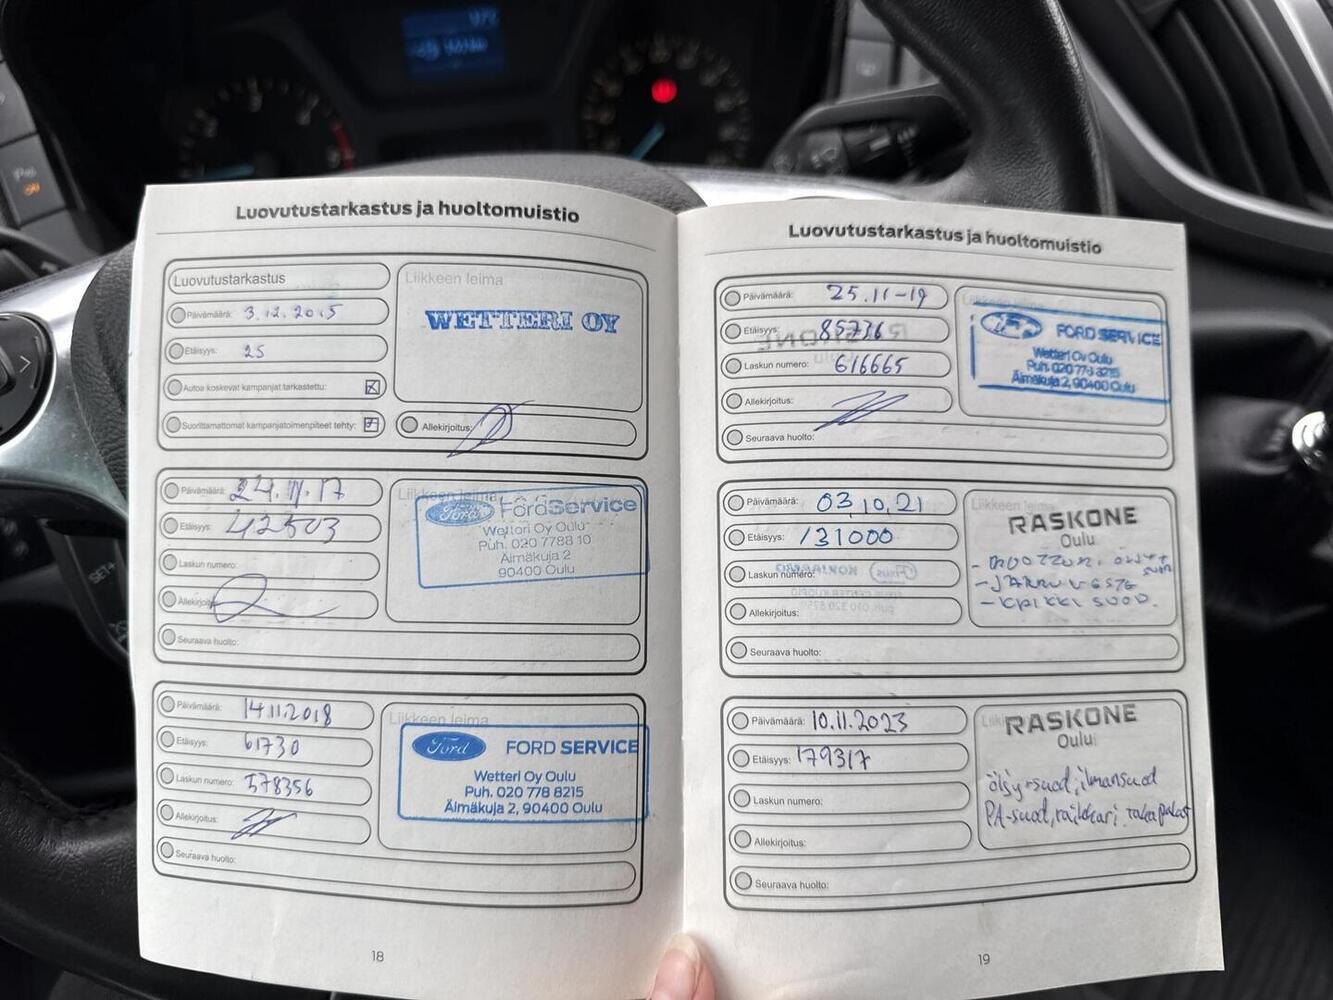 Luovutustarkastus ja huoltomuistio
Luovutustarkastus
Päivämäärä: 3.12.2015
Etäisyys: 25
Autoa koskevat kampanjat tarkastettu:
Suorittamattomat kampanjatoimenpiteet tehty:
Liikkeen leima
WETTERI OY
Allekirjoitus:
Päivämäärä: 24.11.17
Etäisyys: 42503
Laskun numero:
Allekirjoitus:
Seuraava huolto:
Liikkeen leima
Ford FordService
Wetteri Oy Oulu
Puh. 020 7788 10
Äimäkuja 2
90400 Oulu
Päivämäärä: 14.11.2018
Etäisyys: 61730
Laskun numero: 578356
Allekirjoitus:
Seuraava huolto:
Liikkeen leima
Ford FORD SERVICE
Wetteri Oy Oulu
Puh. 020 778 8215
Äimäkuja 2, 90400 Oulu
18
Luovutustarkastus ja huoltomuistio
Päivämäärä: 25.11-19
Etäisyys: 85736
Laskun numero: 616665
Allekirjoitus:
Seuraava huolto:
Liikkeen leima
FORD SERVICE
Wetteri Oy Oulu
Puh. 020 778 8215
Äimäkuja 2, 90400 Oulu
Päivämäärä: 03.10.21
Etäisyys: 131000
Laskun numero:
Allekirjoitus:
Seuraava huolto:
Liikkeen leima
RASKONE
Oulu
- MOOTTORI. ÖLJYT
SUOD
- JARRU NESTE
- KAIKKI SUOD.
Päivämäärä: 10.11.2023
Etäisyys: 179317
Laskun numero:
Allekirjoitus:
Seuraava huolto:
RASKONE
Oulu
öljy+suod, ilmansuod
PA-suod, raikkari. takapalat
19
SET+